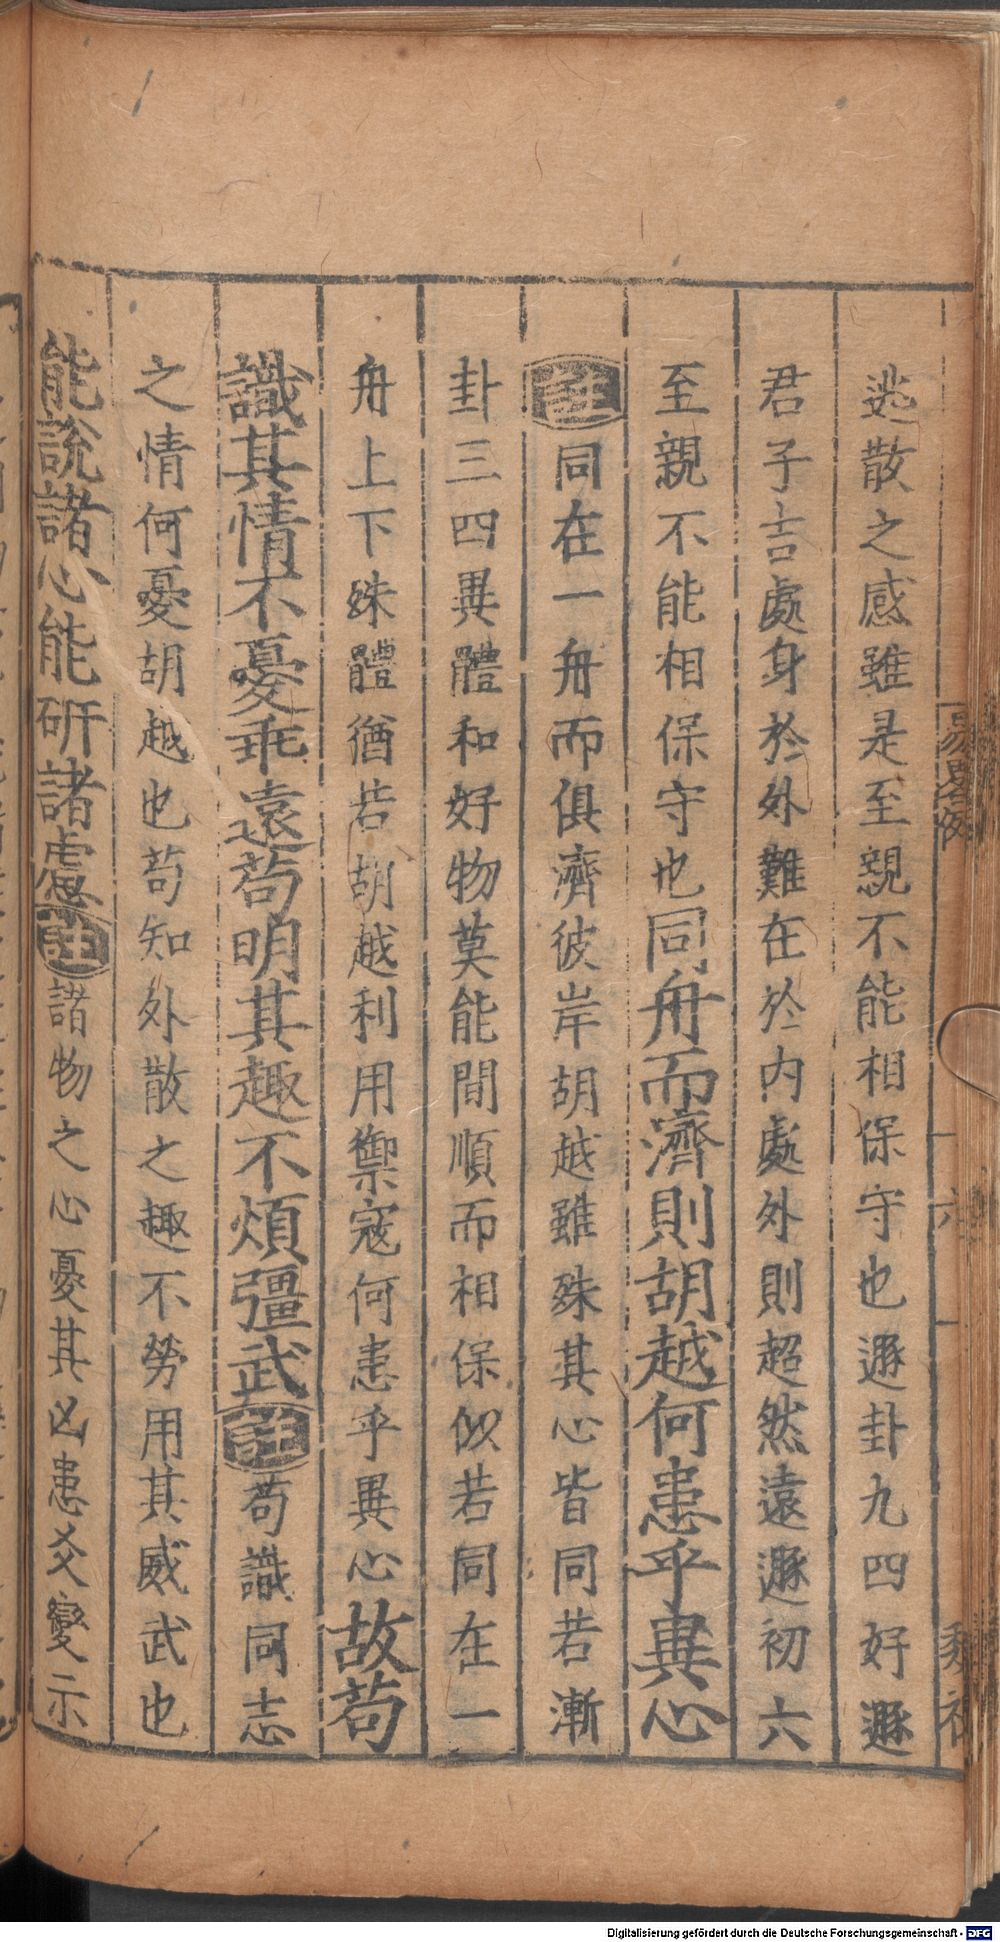 逃散之感雖是至親不能相保守也遯卦九四好遯
君子吉處身於外難在於内處外則超然遠遯初六
至親不能相保守也同舟而濟則胡越何患乎異心
註同在一舟而俱濟彼岸胡越雖殊其心皆同若漸
卦三四異體和好物莫能間順而相保似若同在一
舟上下殊體猶若胡越利用禦寇何患乎異心故苟
識其情不憂乖遠苟明其趣不煩彊武註苟識同志
之情何憂胡越也苟知外散之趣不勞用其威武也
能說諸心能研諸慮註諸物之心憂其凶患爻變示
易畧例
六
Digitalisierung gefördert durch die Deutsche Forschungsgemeinschaft - DFG